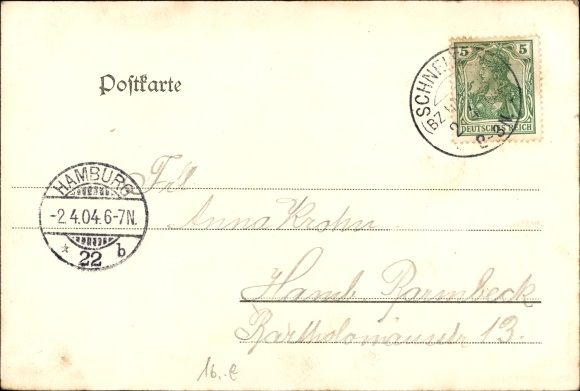 Postkarte
5 5
DEUTSCHES REICH
(BZ.
2-3N.
HAMBURG
-2.4.04.6-7N.
* 22 b
Frl
Anna Krohn
Hamb. Barmbeck
Bartholomäusstr 13.
16.-€